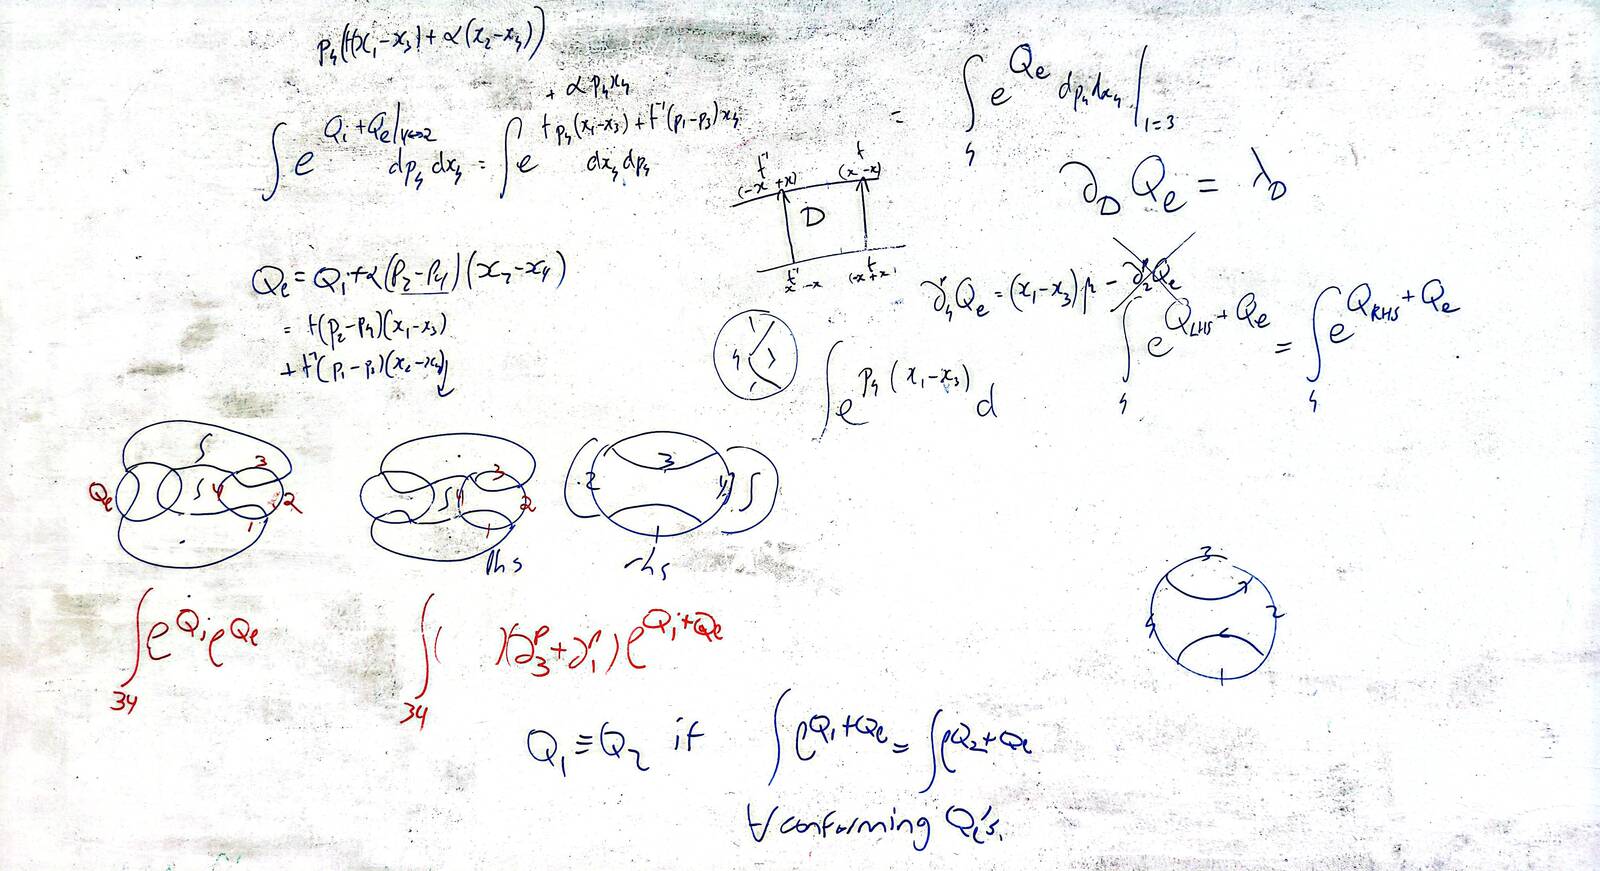 p₄(t(x₁−x₃)+α(x₂−x₄))
+ α p₄x₄
∫ e^{Q_i+Q_e|_{4↔2}} dp₄ dx₄ = ∫ e^{t p₄(x₁−x₃)+t⁻¹(p₁−p₃)x₄} dx₄ dp₄
= ∫₄ e^{Q_e} dp₄dx₄ |_{1=3}
∂_D Q_e = λ_D
t⁻¹ (−x+x)
t (x−x)
D
t⁻¹ x−x
t (−x+x)
Q_e = Q_i+α(p₂−p₄)(x₂−x₄)
= t(p₂−p₄)(x₁−x₃)
+ t⁻¹(p₁−p₃)(x₂−x₄)
∂₄^p Q_e = (x₁−x₃)
∫₄ e^{Q_LHS+Q_e} = ∫₄ e^{Q_RHS+Q_e}
4
∫ e^{p₄(x₁−x₃)} d
Q_e ∫ ∫ 4 3 2 1
∫ 4 3 2 1
lhs
2 3 4 1 ∫
rhs
3 2 4 1
∫₃₄ e^{Q_i} e^{Q_e}
∫₃₄ ( )(∂₃^p+∂₁^p) e^{Q_i+Q_e}
Q₁ ≡ Q₂ if ∫ e^{Q₁+Q_e} = ∫ e^{Q₂+Q_e}
∀ conforming Q_e's.